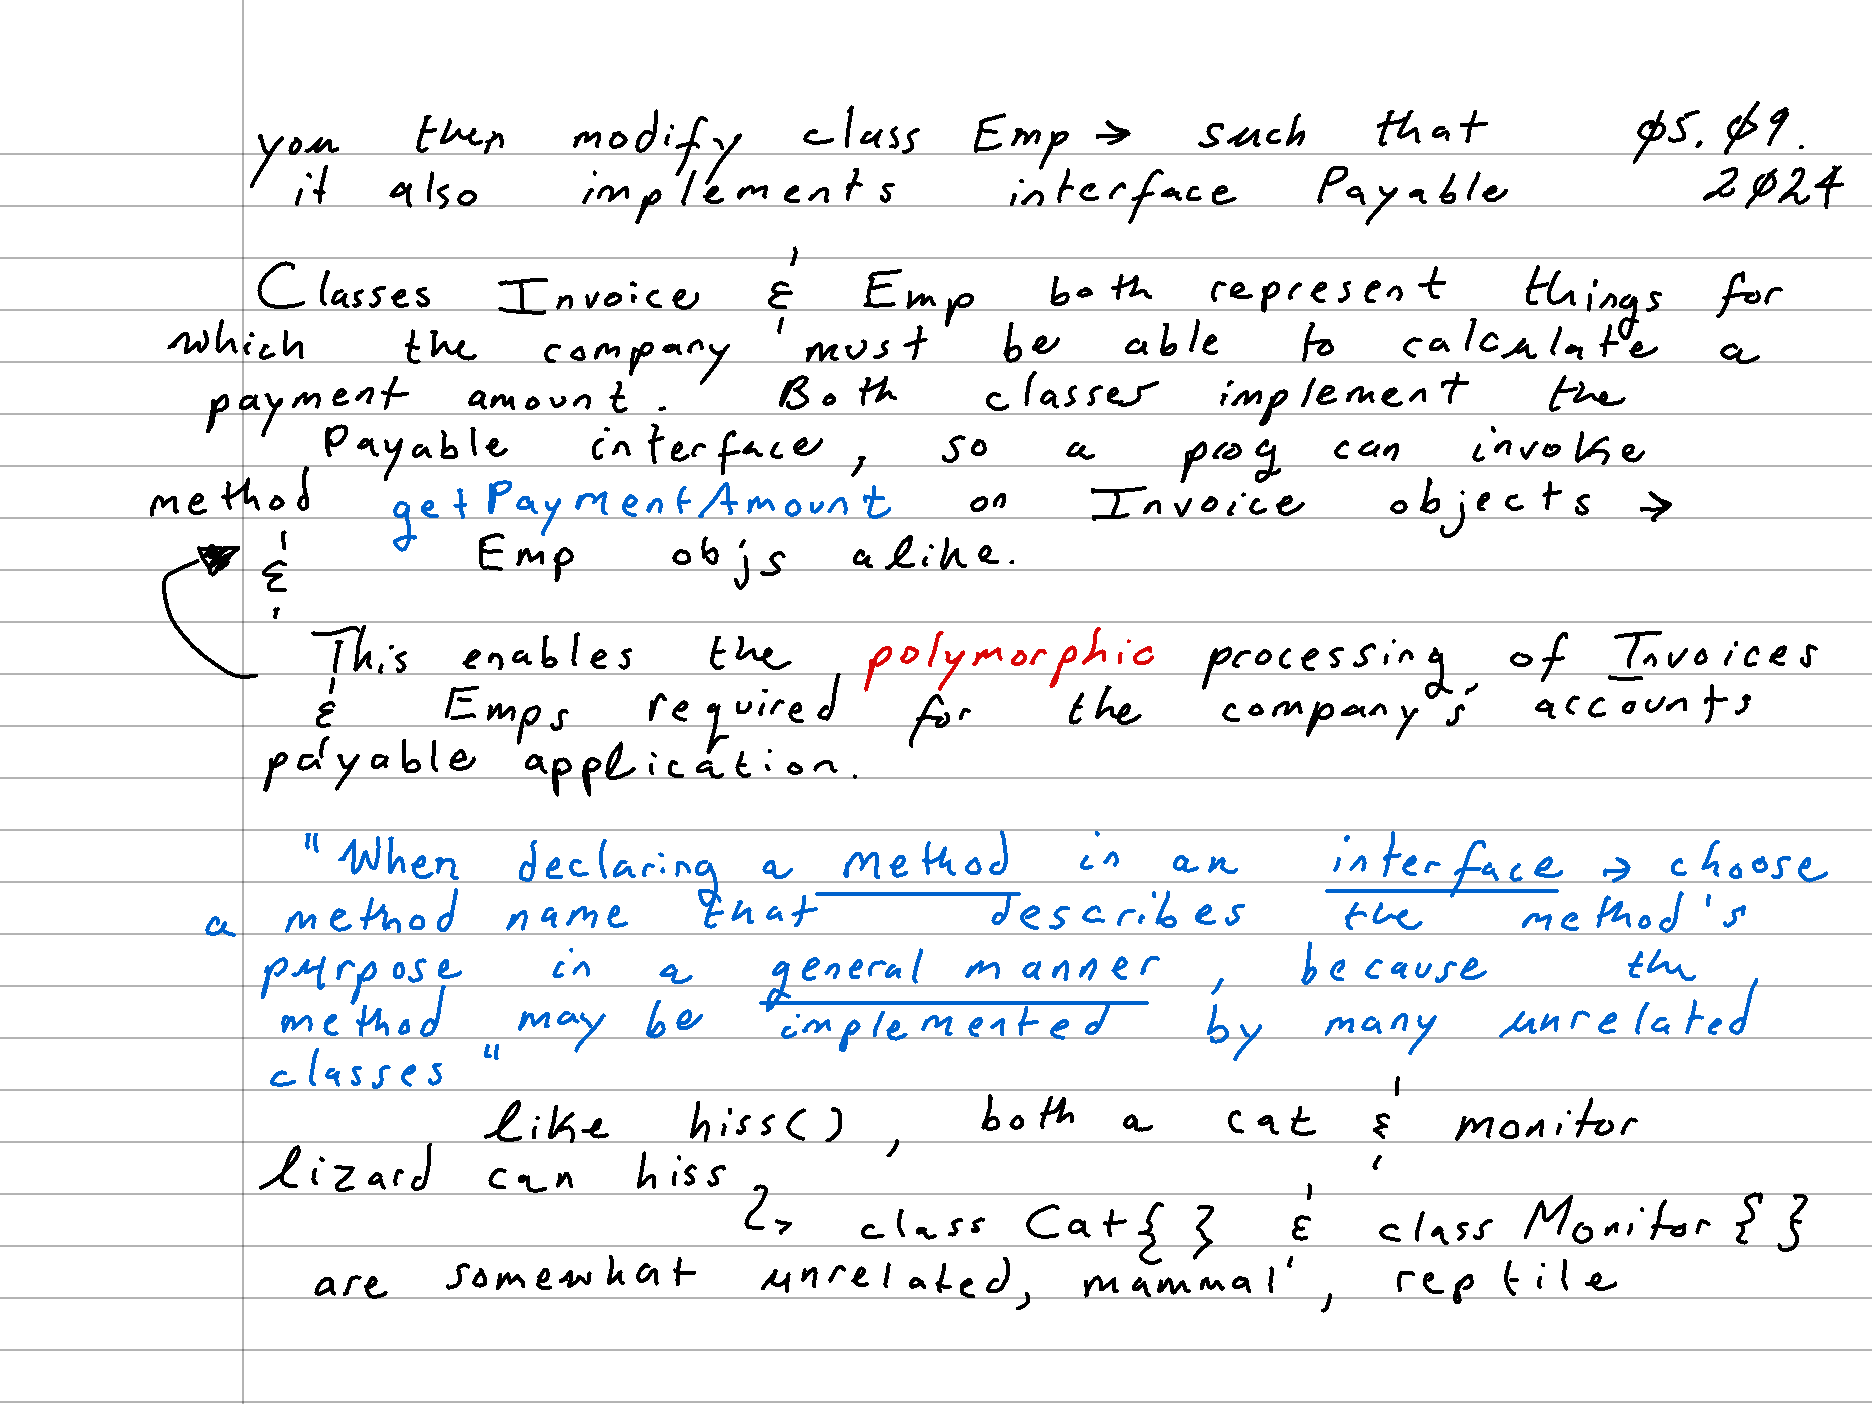 you then modify class Emp → such that 05.09.
it also implements interface Payable 2024
Classes Invoice & Emp both represent things for
which the company must be able to calculate a
payment amount. Both classes implement the
Payable interface, so a prog can invoke
method getPaymentAmount on Invoice objects →
& Emp objs alike.
This enables the polymorphic processing of Invoices
& Emps required for the company's accounts
payable application.
"When declaring a method in an interface → choose
a method name that describes the method's
purpose in a general manner, because the
method may be implemented by many unrelated
classes"
like hiss(), both a cat & monitor
lizard can hiss
↳ class Cat{ } & class Monitor{ }
are somewhat unrelated, mammal, reptile